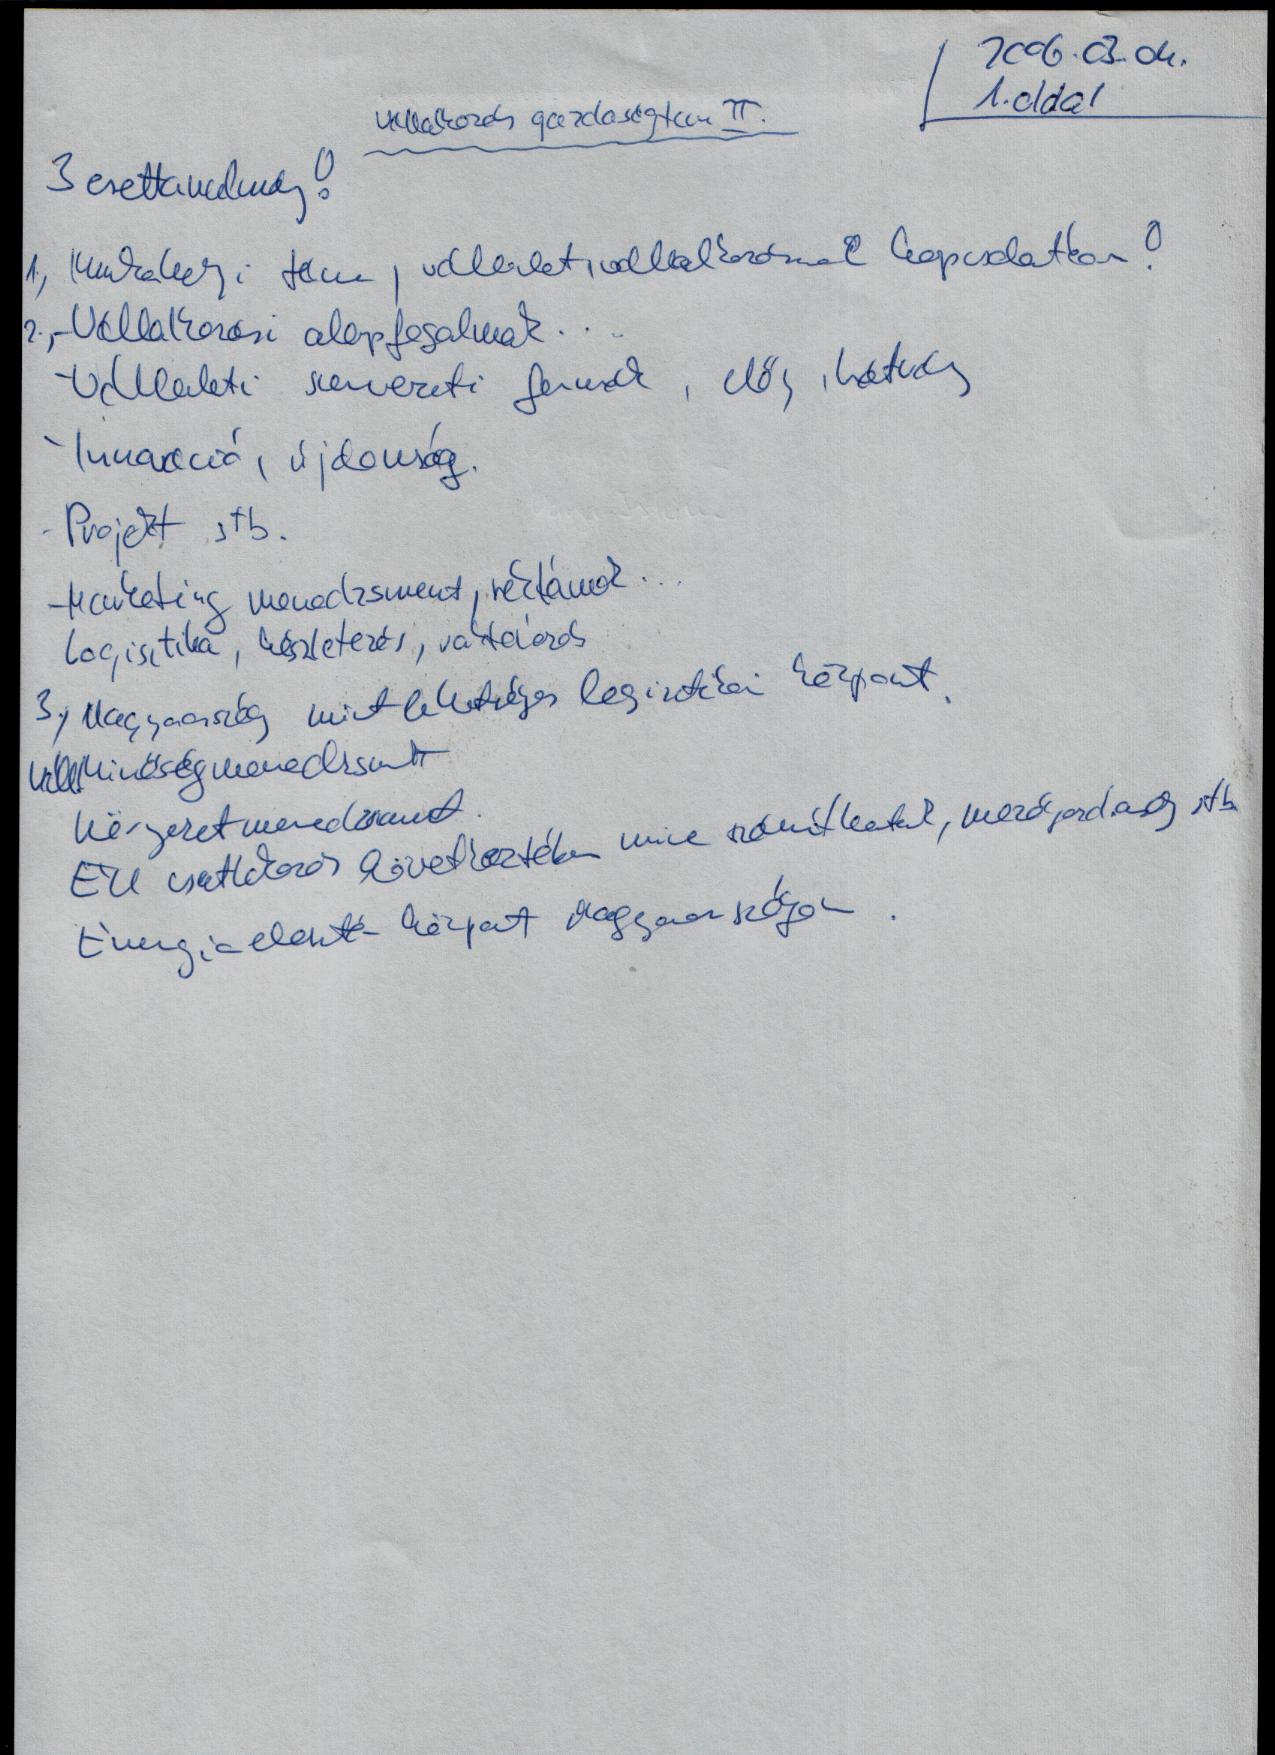 2006.03.04.
1. oldal
Vállalkozás gazdaságtan II.
3 esettanulmány!
1, Munkahelyi téma, vállalati, vállalkozásnak kapcsolatban!
2., - Vállalkozási alapfogalmak...
- Vállalati szervezeti formák, előny, hátrány
- Innováció, újdonság.
- Projekt stb.
- Marketing menedzsment, reklámok...
Logisztika, készletezés, raktározás
3, Magyarország mint lehetséges logisztikai központ.
Minőségmenedzsment
Környezetmenedzsment.
EU csatlakozás következtében mire számíthatunk, mezőgazdaság stb
Energiaelosztó központ Magyarországon.